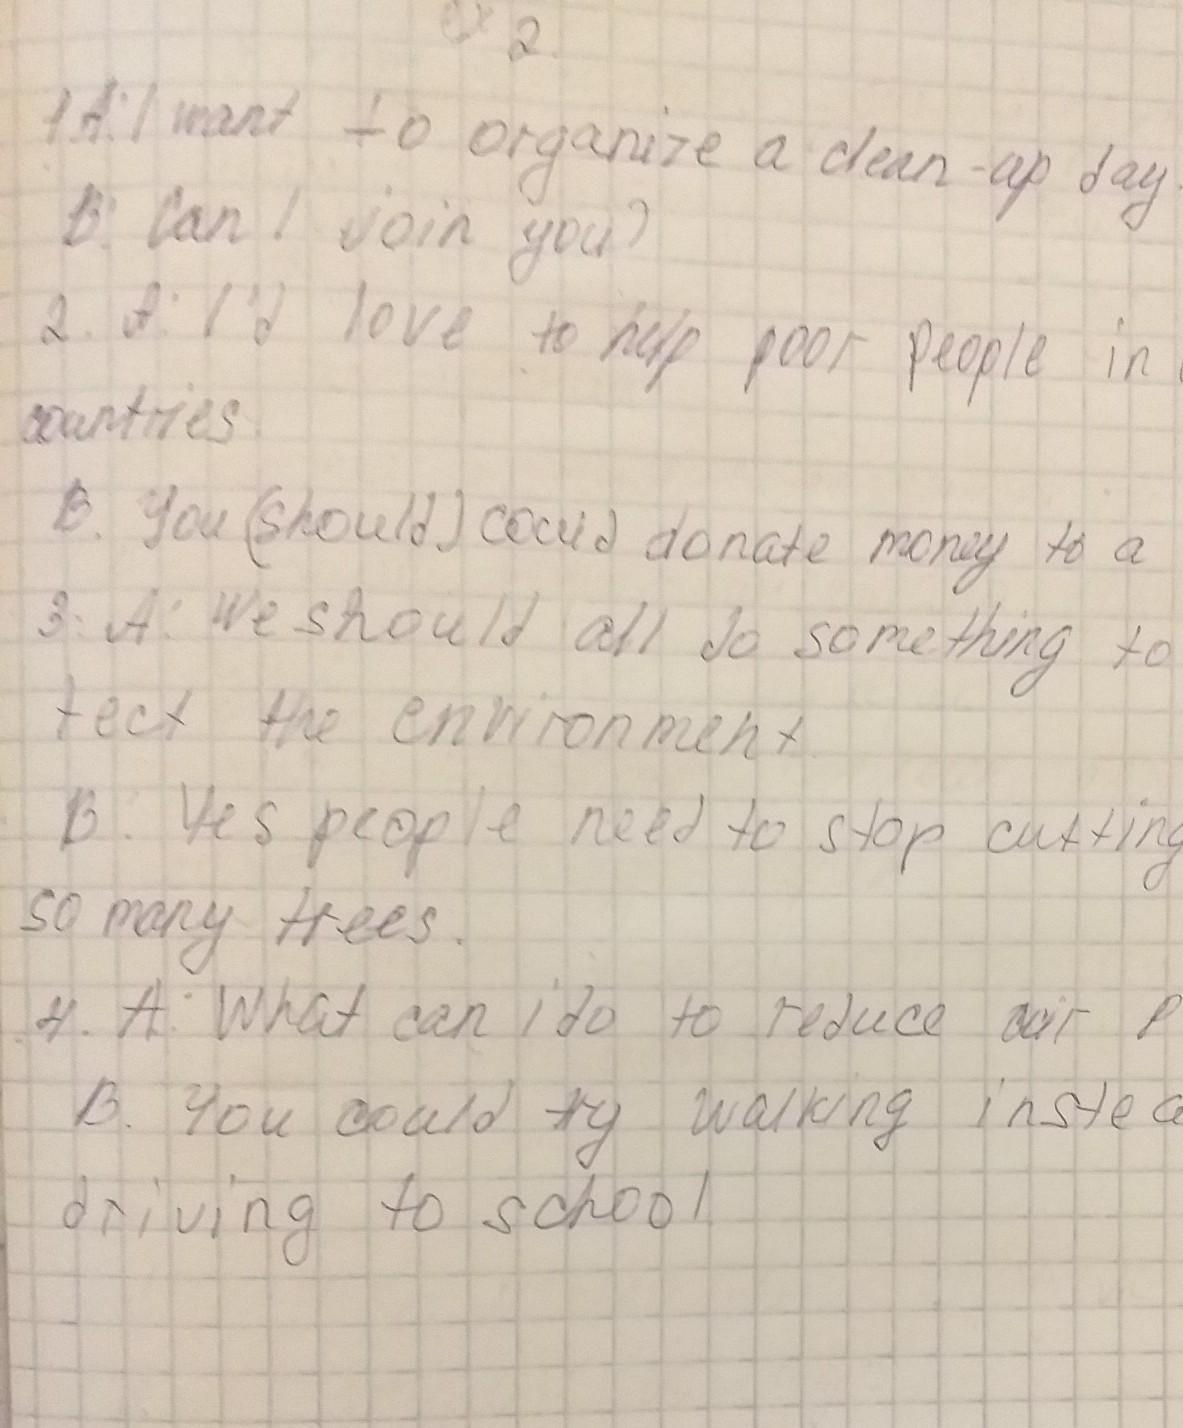 2.
1 A: I want to organize a clean-up day.
B: Can I join you?
2. A: I'd love to help poor people in
countries.
B. You (should) could donate money to a
3: A: We should all do something to
tect the environment.
B: Yes people need to stop cutting
so many trees.
4. A: What can i do to reduce air p
B. You could try walking instea
driving to school